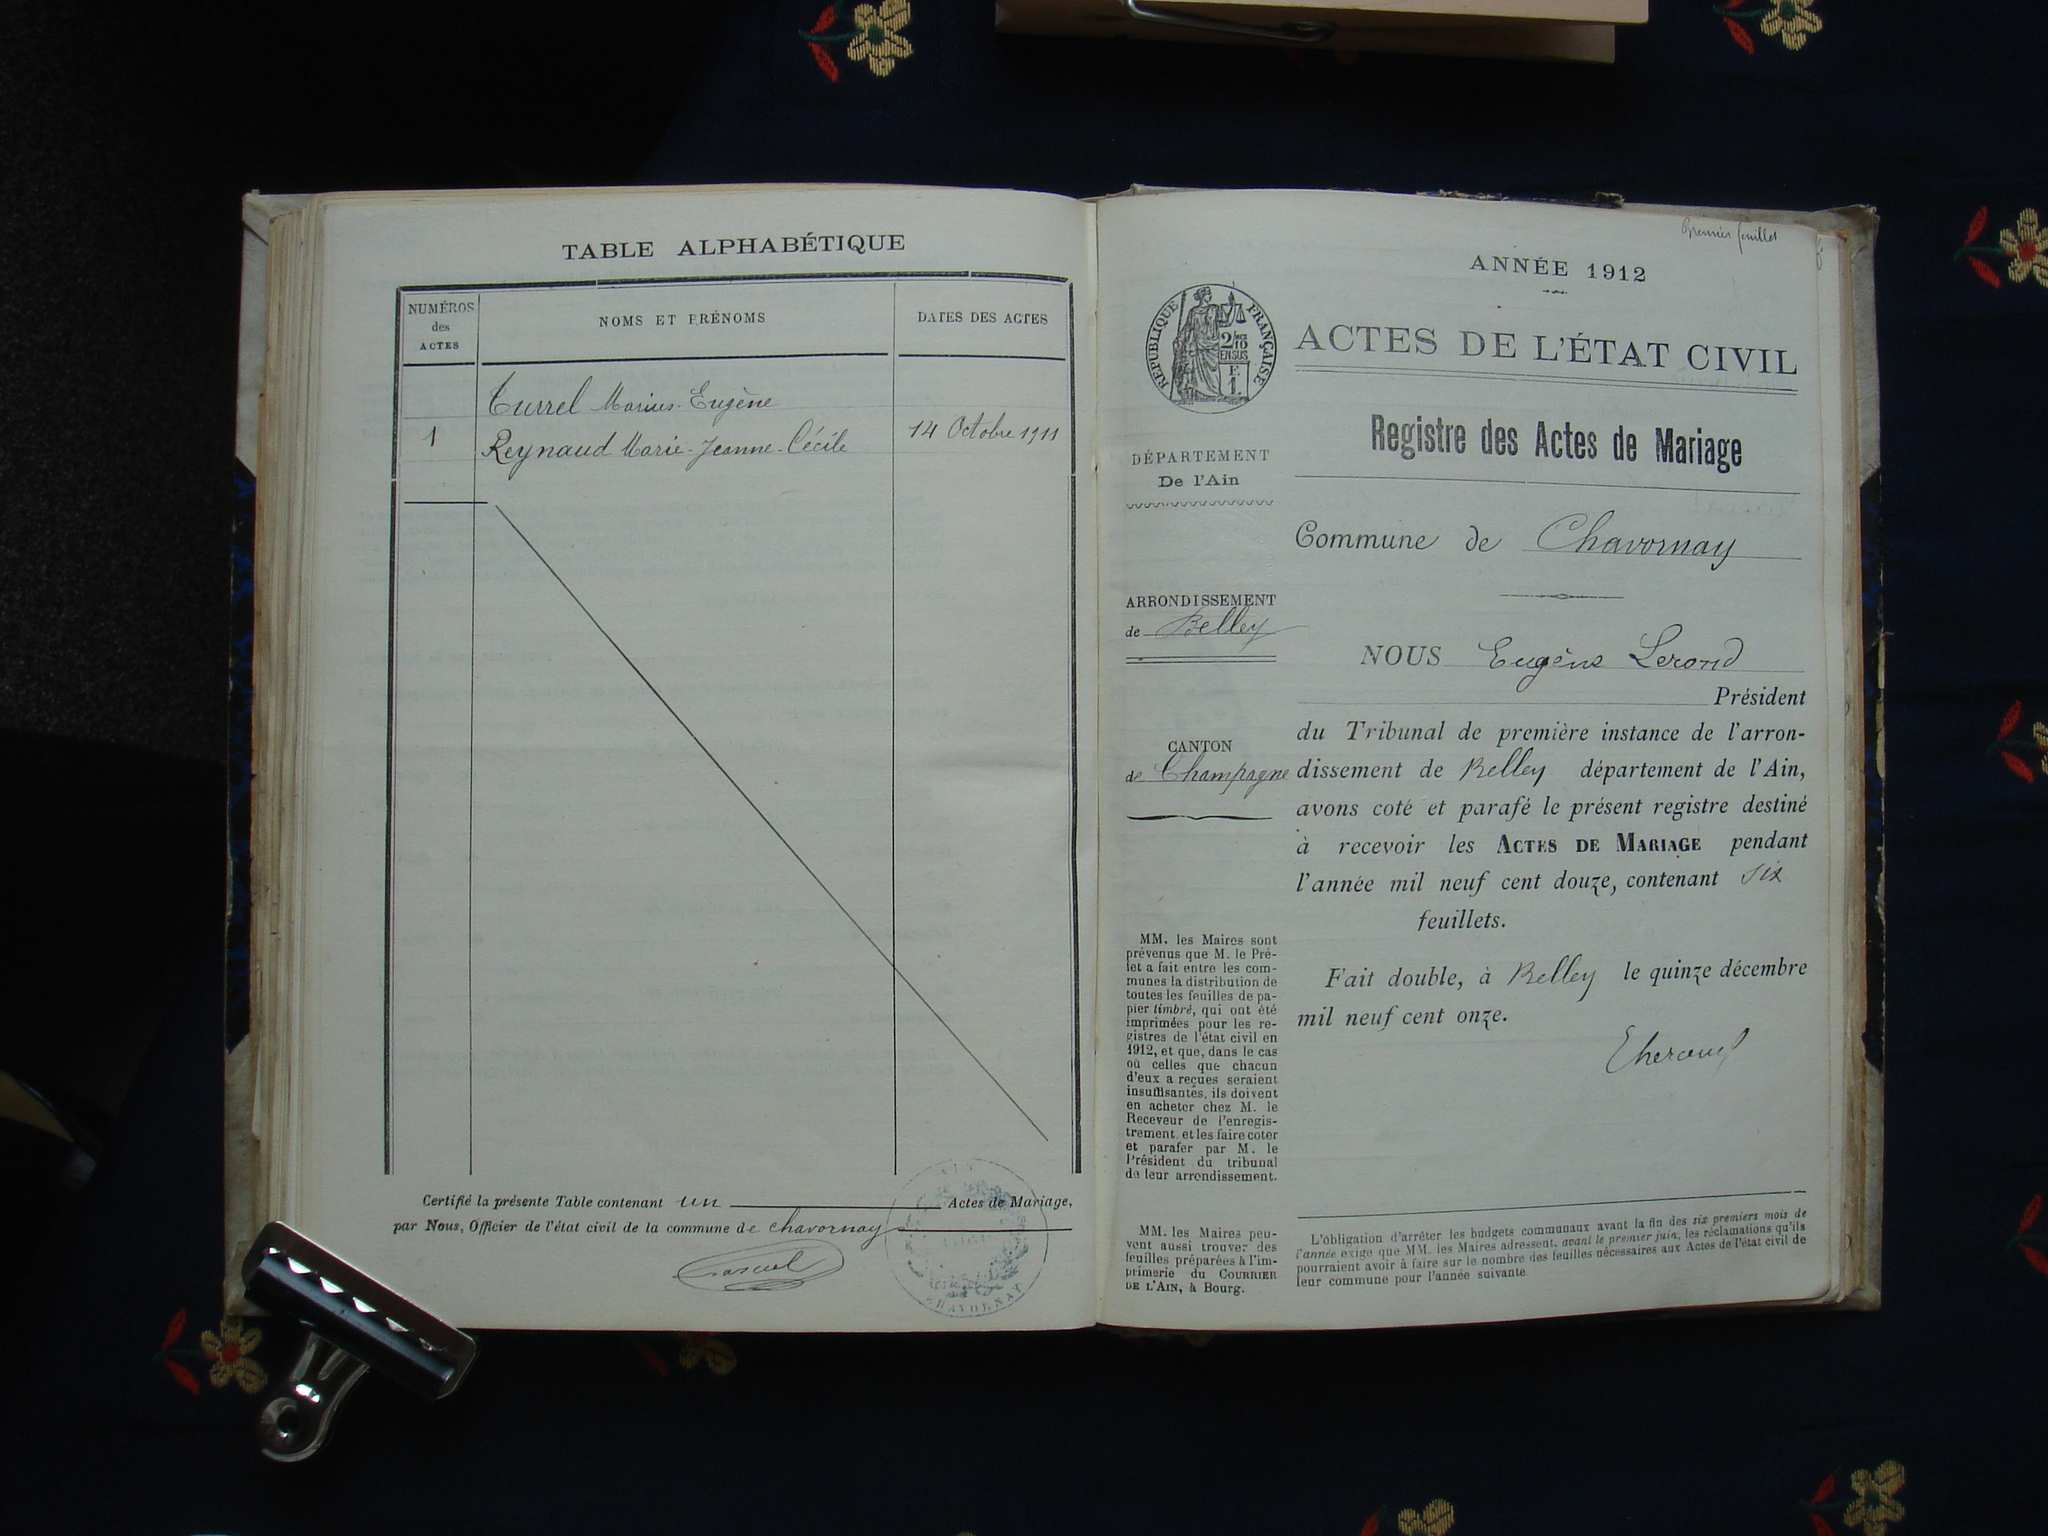 TABLE ALPHABÉTIQUE
NUMÉROS
des
ACTES
NOMS ET PRÉNOMS
DATES DES ACTES
Turrel Marius-Eugène
1 Reynaud Marie-Jeanne-Cécile 14 Octobre 1911
Certifié la présente Table contenant un Actes de Mariage,
par Nous, Officier de l'état civil de la commune de Chavornay
CHAVORNAY
Premier feuillet
ANNÉE 1912
RÉPUBLIQUE FRANÇAISE
2/10
EN SUS
F
1.
ACTES DE L'ÉTAT CIVIL
Registre des Actes de Mariage
DÉPARTEMENT
De l'Ain
Commune de Chavornay
ARRONDISSEMENT
de Belley
CANTON
de Champagne
MM. les Maires sont
prévenus que M. le Pré-
fet a fait entre les com-
munes la distribution de
toutes les feuilles de pa-
pier timbré, qui ont été
imprimées pour les re-
gistres de l'état civil en
1912, et que, dans le cas
où celles que chacun
d'eux a reçues seraient
insuffisantes, ils doivent
en acheter chez M. le
Receveur de l'enregis-
trement et les faire coter
et parafer par M. le
Président du tribunal
de leur arrondissement.
MM. les Maires peu-
vent aussi trouver des
feuilles préparées à l'im-
primerie du COURRIER
DE L'AIN, à Bourg.
NOUS Eugène Lerond
Président
du Tribunal de première instance de l'arron-
dissement de Belley département de l'Ain,
avons coté et parafé le présent registre destiné
à recevoir les ACTES DE MARIAGE pendant
l'année mil neuf cent douze, contenant six
feuillets.
Fait double, à Belley le quinze décembre
mil neuf cent onze.
L'obligation d'arrêter les budgets communaux avant la fin des six premiers mois de
l'année exige que MM. les Maires adressent, avant le premier juin, les réclamations qu'ils
pourraient avoir à faire sur le nombre des feuilles nécessaires aux Actes de l'état civil de
leur commune pour l'année suivante